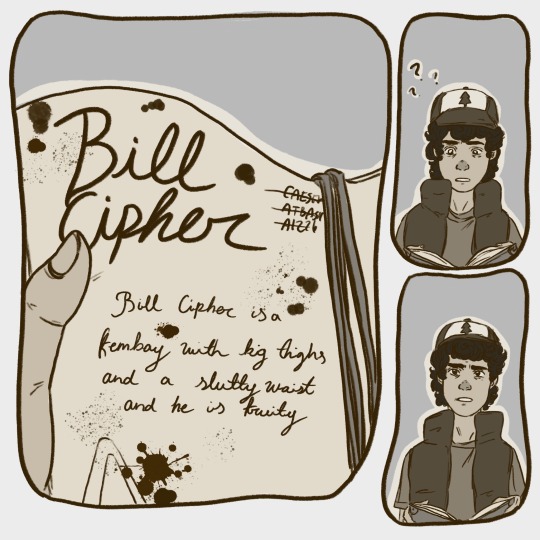 Bill
Cipher
CAESAR
ATBASH
A1Z26
Bill Cipher is a
fembay with big thighs
and a slutty waist
and he is fruity
? ? ?